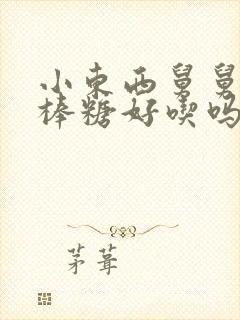 小東西舅舅
棒糖好喫吗
茅葺